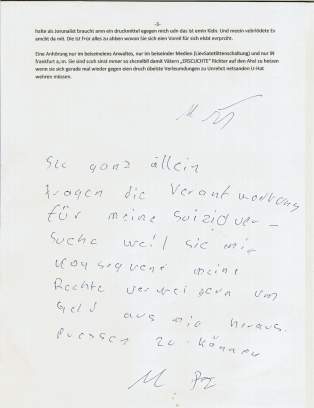 -5-
halte als Jornalist braucht amn ein druckmittel egegen mich udn das ist emin Kidn. Und meein vebrlödete Ex
amcht da mit. Die ist fròr alles zu ahben wovon Sie sich eien Voreil für sich ebbt erprciht.
Eine Anhörung nur im beiseinelens Anwaltes, nur im beiseinder Medien (LievSatettilenschaltung) und nur IN
frankfurt a,m. Sie sind scoh sinst immer so shcnelbil damid Vätern „ERSCLICHTE" Richter auf den Ahsl zu hetzen
wenn sie sich gerade mal wieder gegen eien druch übelste Verleumdungen zu Unrehct netsanden U-Hat
wehren müssen.
Sie ganz allein
tragen die Verantwortung
für meine Suizidver-
suche weil sie mir
konsequent meine
Rechte verweigern um
Geld aus mir heraus
pressen zu können